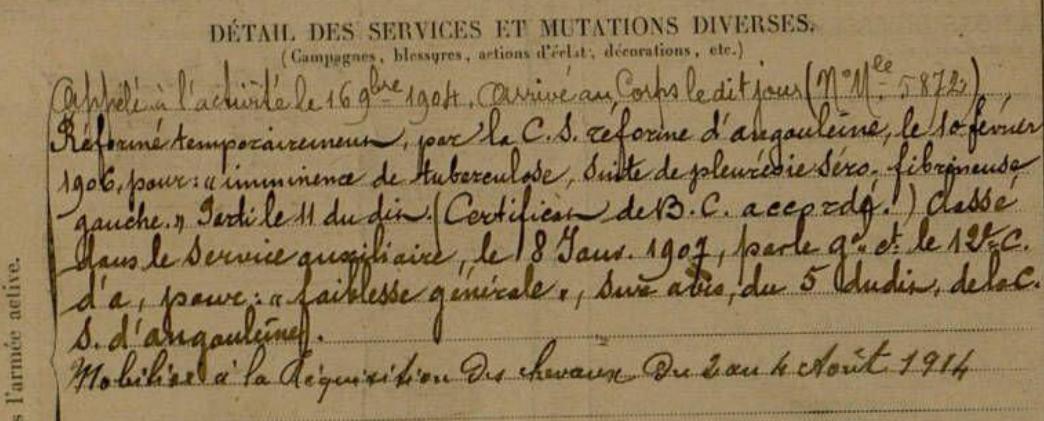 DÉTAIL DES SERVICES ET MUTATIONS DIVERSES.
(Campagnes, blessures, actions d'éclat, décorations, etc.)
Appelé à l'activité le 16 9bre 1904. Arrivé au Corps le dit jour (N° Mle 5872).
Réformé temporairement, par la C. S. réforme d'angoulême, le 10 février
1906, pour: "imminence de tuberculose, suite de pleurésie séro-fibrineuse
gauche." Parti le 11 du dit. (Certificat de B. C. accordé.) Classé
dans le service auxiliaire, le 8 Janv. 1907, par le Gal Ct le 12e C.
d'a, pour: "faiblesse générale", sur avis, du 5 dudit, de la C.
S. d'angoulême.
Mobilisé à la Réquisition des chevaux Du 2 au 4 Août 1914
s l'armée active.